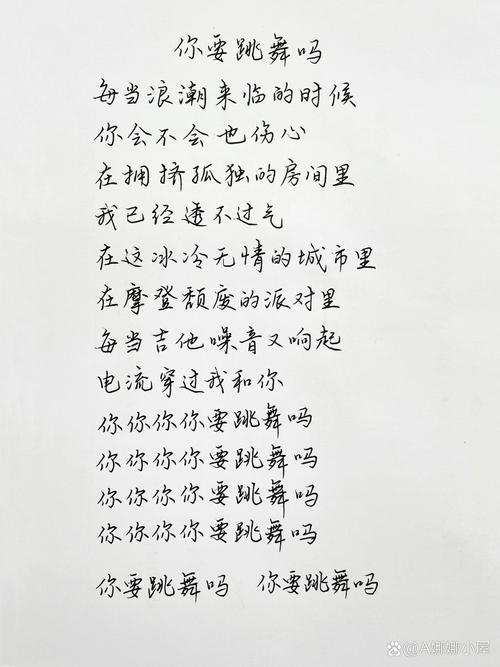 你要跳舞吗
每当浪潮来临的时候
你会不会也伤心
在拥挤孤独的房间里
我已经透不过气
在这冰冷无情的城市里
在摩登颓废的派对里
每当吉他噪音又响起
电流穿过我和你
你你你你要跳舞吗
你你你你要跳舞吗
你你你你要跳舞吗
你你你你要跳舞吗
你要跳舞吗 你要跳舞吗
@A娜娜小屋